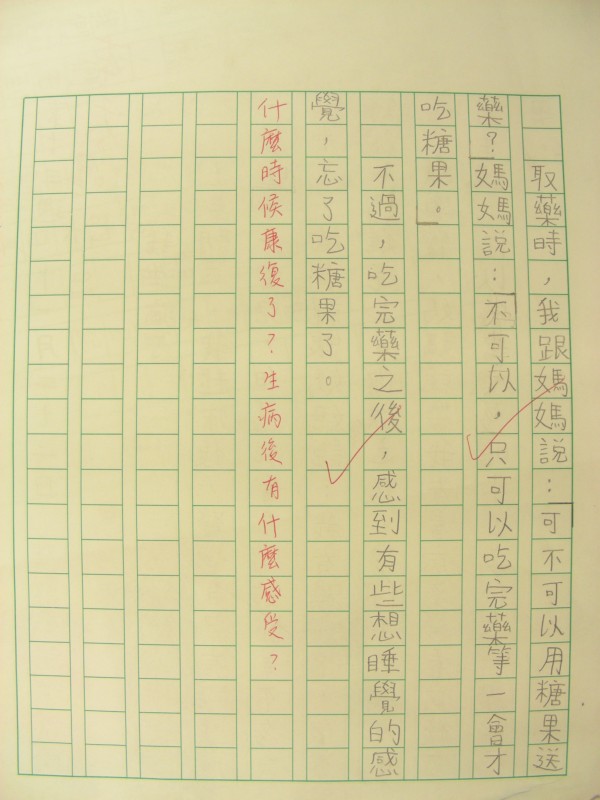 取藥時，我跟媽媽說：「可不可以用糖果送
藥？」媽媽說：「不可以，只可以吃完藥等一會才
吃糖果。」
不過，吃完藥之後，感到有些想睡覺的感
覺，忘了吃糖果了。
什麼時候康復了？生病後有什麼感受？